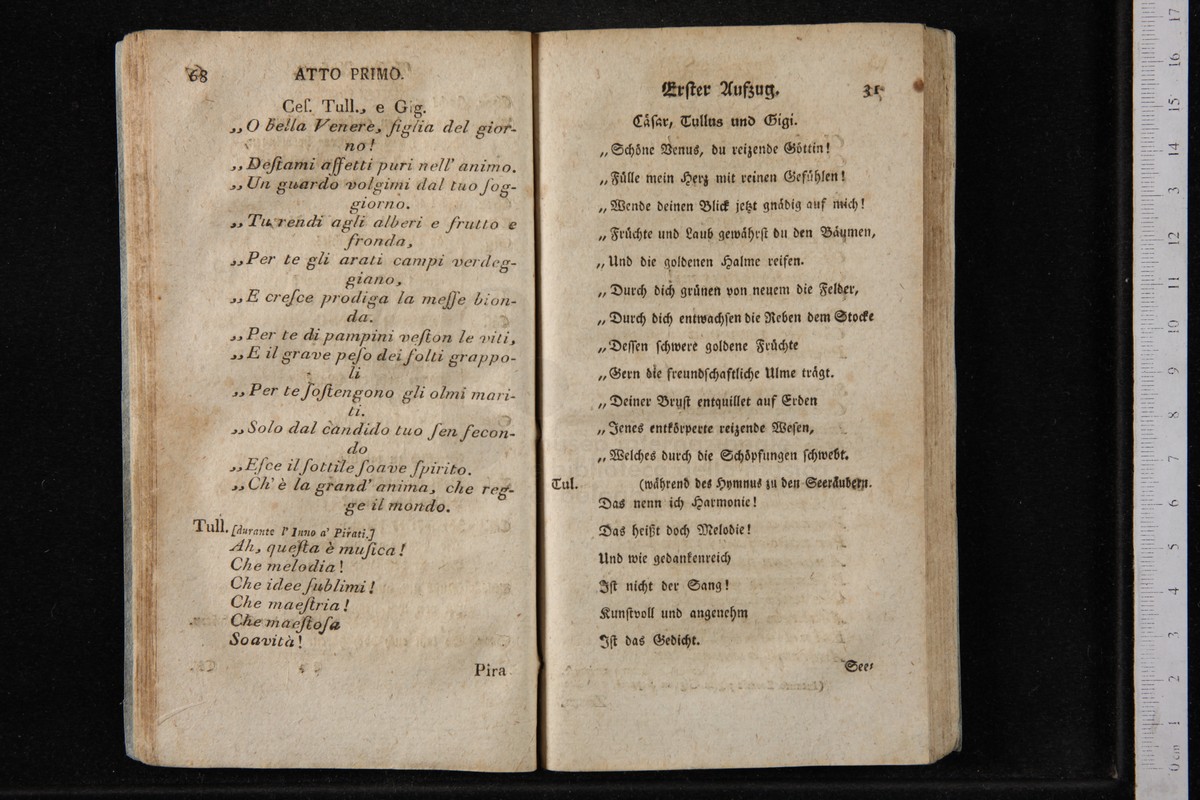 68 ATTO PRIMO.
Ceſ. Tull., e Gig.
„O bella Venere, figlia del gior-
no!
„Deſtami affetti puri nell' animo.
„Un guardo volgimi dal tuo ſog-
giorno.
„Tu rendi agli alberi e frutto e
fronda,
„Per te gli arati campi verdeg-
giano,
„E creſce prodiga la meſſe bion-
da.
„Per te di pampini veſton le viti,
„E il grave peſo dei folti grappo-
li
„Per te ſoſtengono gli olmi mari-
ti.
„Solo dal candido tuo ſen fecon-
do
„Eſce il ſottile ſoave ſpirito.
„Ch' è la grand' anima, che reg-
ge il mondo.
Tull. [durante l' Inno a' Pirati.]
Ah, queſta è muſica!
Che melodia!
Che idee ſublimi!
Che maeſtria!
Che maeſtoſa
Soavità!
Pira
Erſter Aufzug. 31
Cäſar, Tullus und Gigi.
„Schöne Venus, du reizende Göttin!
„Fülle mein Herz mit reinen Gefühlen!
„Wende deinen Blick jetzt gnädig auf mich!
„Früchte und Laub gewährſt du den Bäumen,
„Und die goldenen Halme reifen.
„Durch dich grünen von neuem die Felder,
„Durch dich entwachſen die Reben dem Stocke
„Deſſen ſchwere goldene Früchte
„Gern die freundſchaftliche Ulme trägt.
„Deiner Bruſt entquillet auf Erden
„Jenes entkörperte reizende Weſen,
„Welches durch die Schöpfungen ſchwebt.
Tul. (während des Hymnus zu den Seeräubern.
Das nenn ich Harmonie!
Das heißt doch Melodie!
Und wie gedankenreich
Iſt nicht der Sang!
Kunſtvoll und angenehm
Iſt das Gedicht.
See⸗
0 cm 1 2 3 4 5 6 7 8 9 10 11 12 13 14 15 16 17